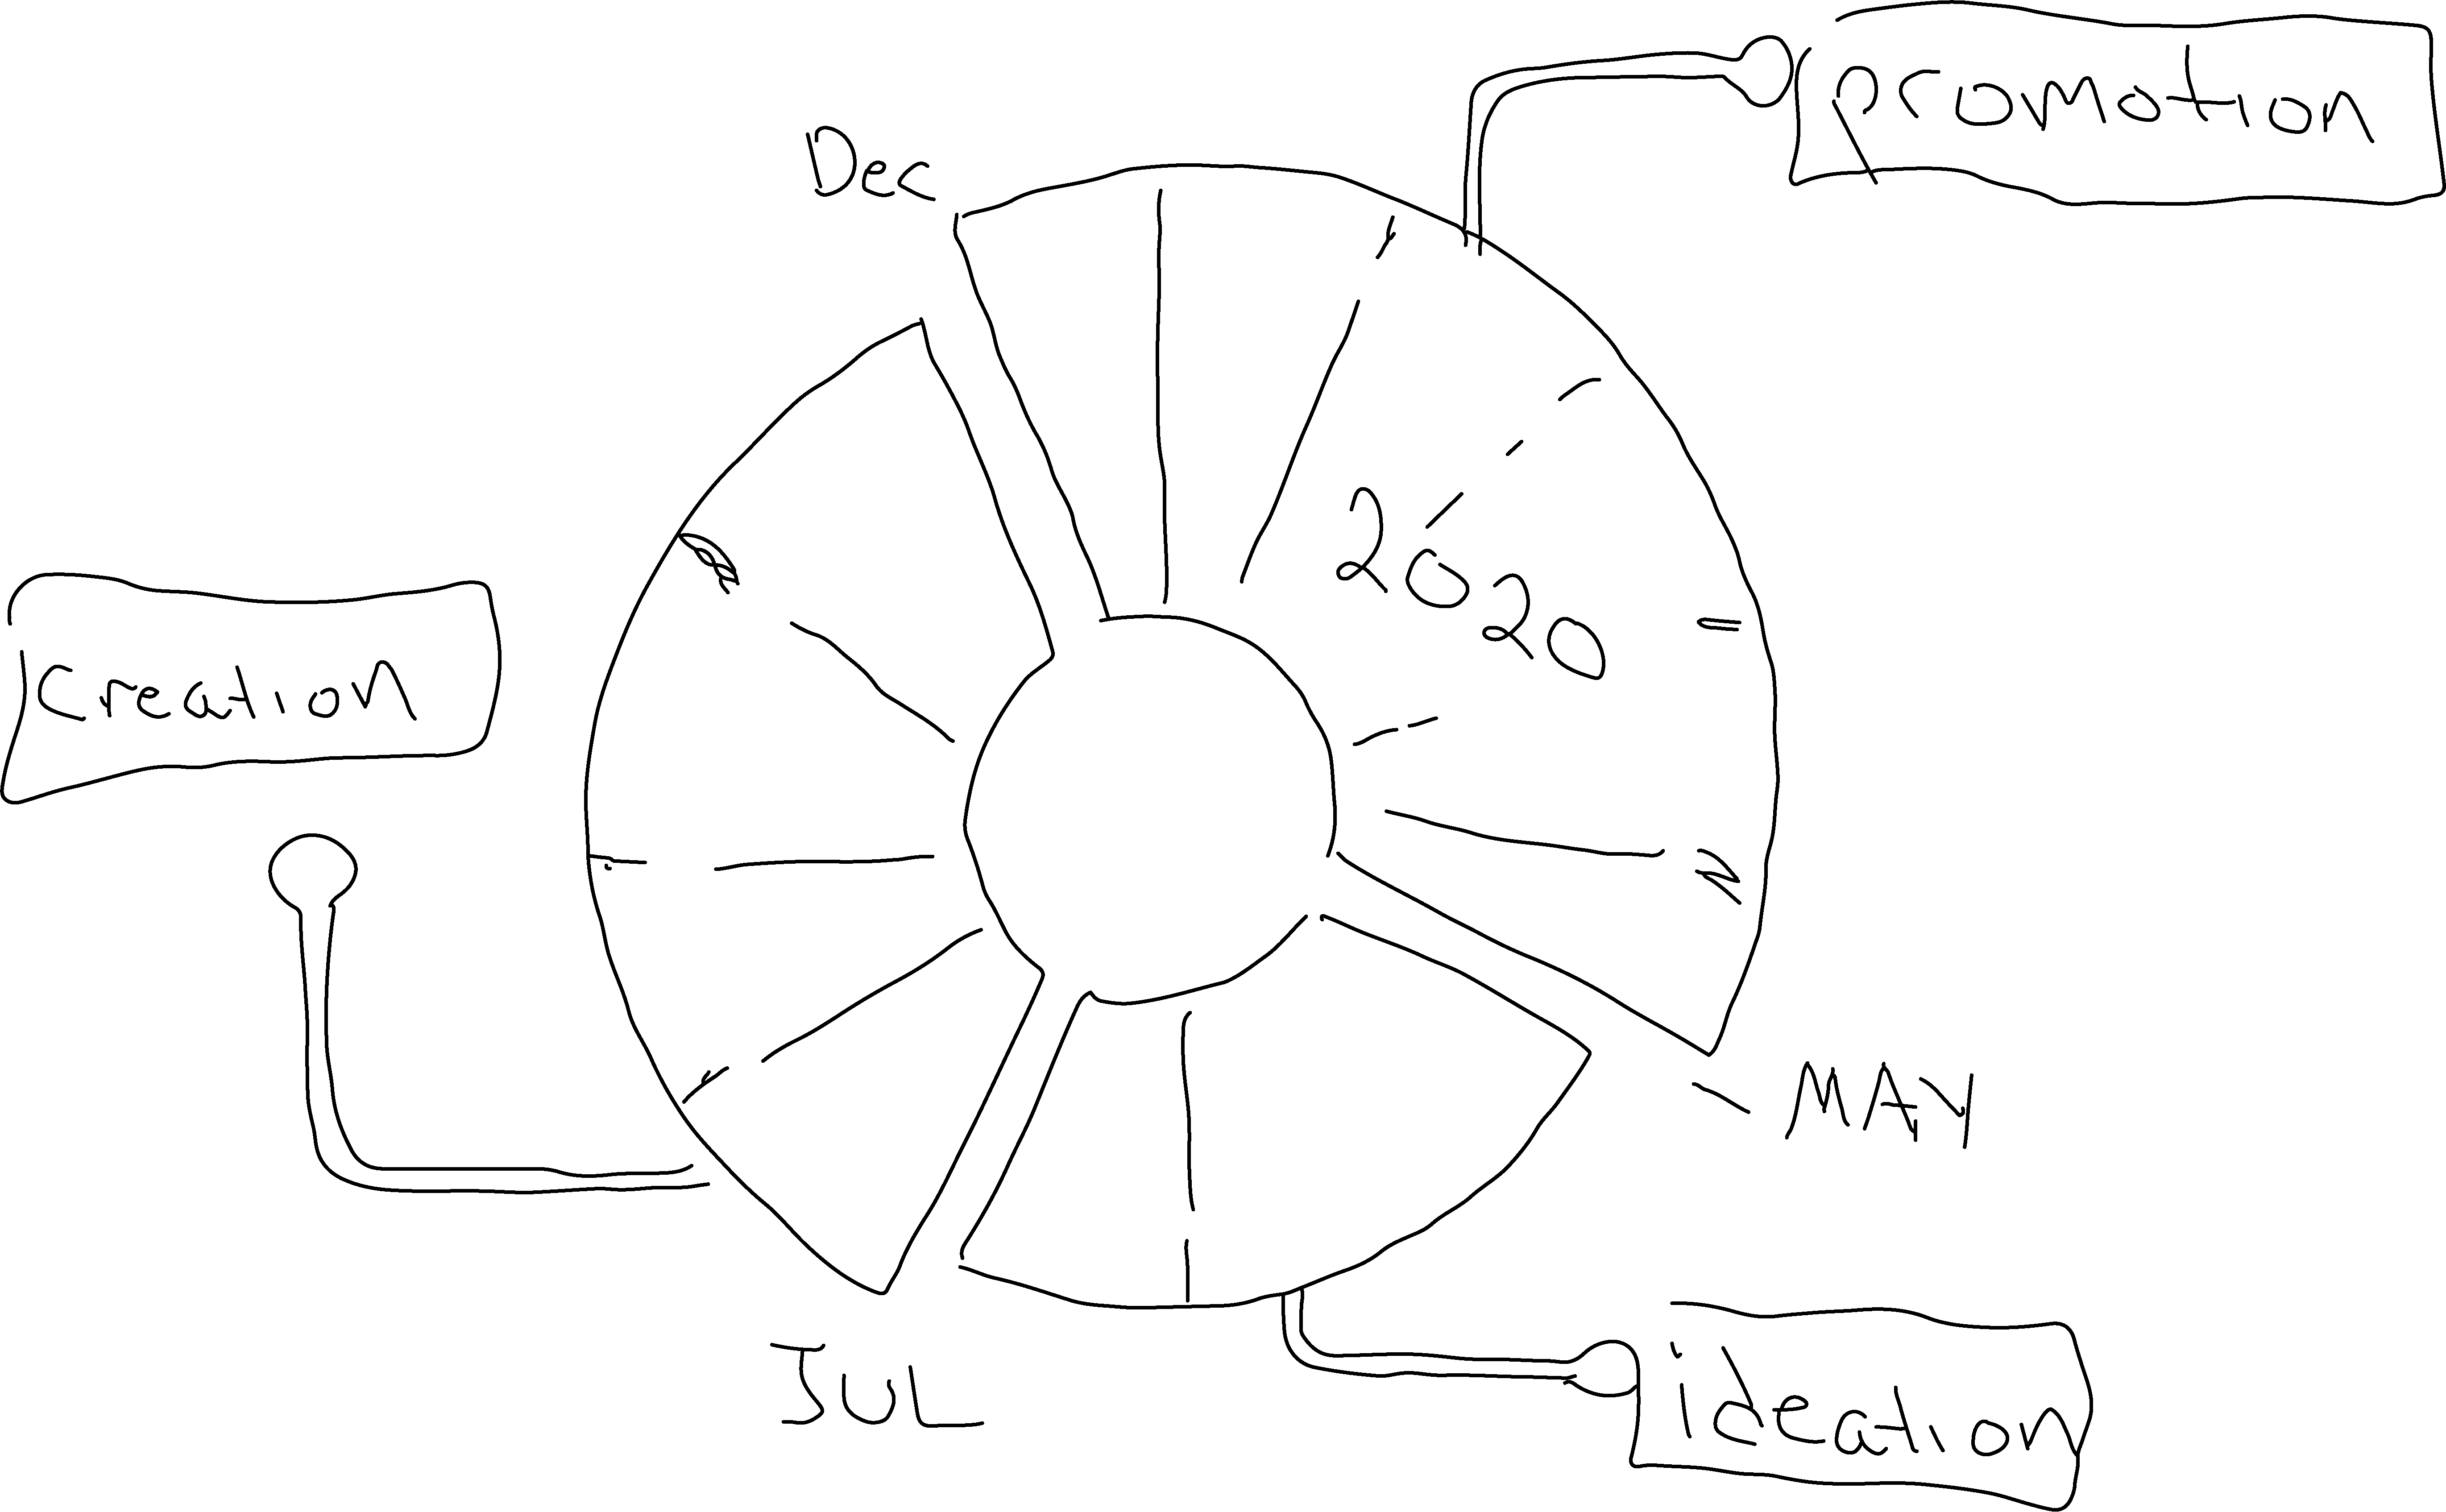 promotion
Dec
2020
Creation
MAY
JUL
ideation